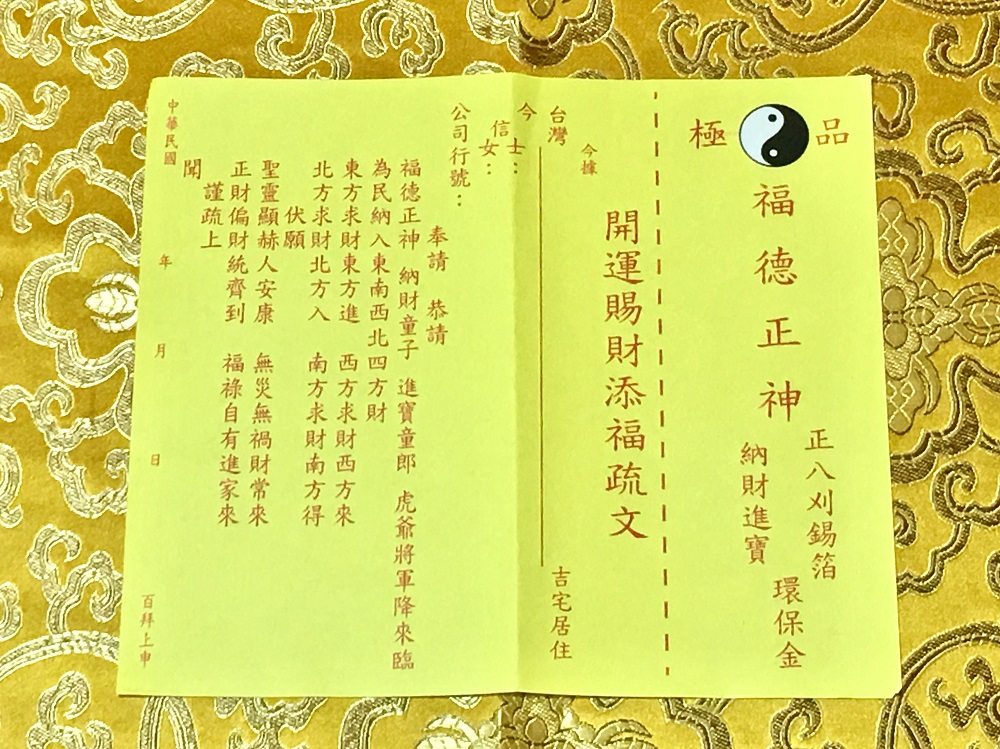 極品
福德正神
正八刈錫箔
納財進寶
環保金
開運賜財添福疏文
今據
台灣
吉宅居住
今
信士：
女：
公司行號：
奉請 恭請
福德正神 納財童子 進寶童郎 虎爺將軍降來臨
為民納入東南西北四方財
東方求財東方進 西方求財西方來
北方求財北方入 南方求財南方得
伏願
聖靈顯赫人安康 無災無禍財常來
正財偏財統齊到 福祿自有進家來
謹疏上
聞
中華民國 年 月 日 百拜上申